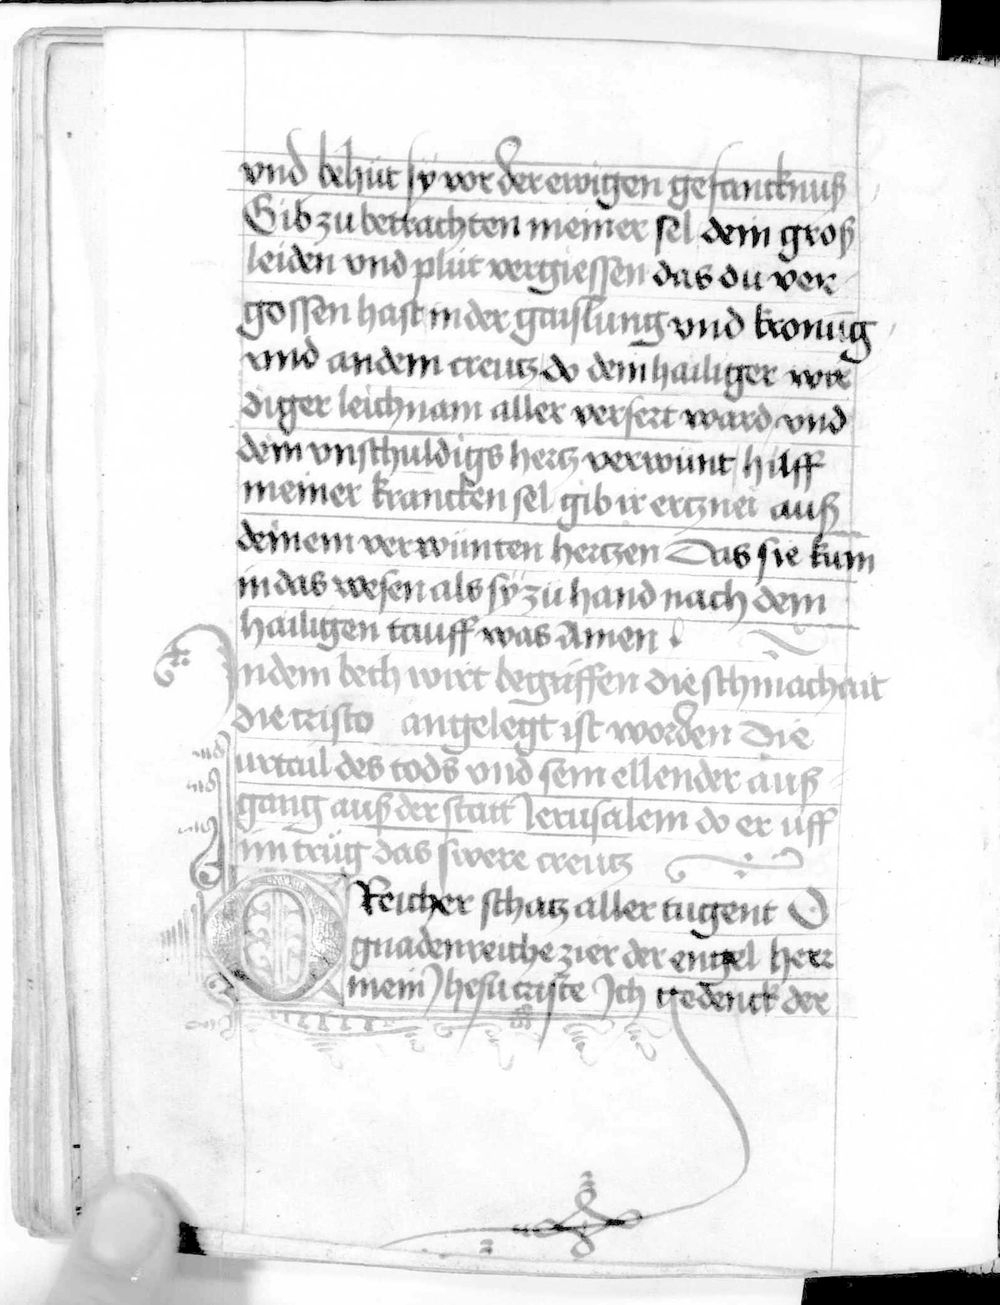 vnd behüt sÿ vor der ewigen gefancknuß
Gib zu betrachten meiner sel dein groß
leiden vnd plůt vergiessen das du ver
gossen hast in der gaislung vnd kronūg
vnd an dem creutz do dein hailiger wir
diger leichnam aller versert ward vnd
dein vnschuldigs hertz verwunt hilff
meiner krancken sel gib ir ertznei auß
deinem verwunten hertzen Das sie kum
in das wesen als sÿ zu hand nach dem
hailigen tauff was Amen
In dem bett wirt begriffen die schmachait
die cristo angelegt ist worden Die
urtail des tods vnd sein ellender auß
gang auß der statt Jerusalem do er uff
im trůg das swere creutz
O Reicher schatz aller tugent O
gnadenreiche zier der engel herr
mein Jhesu criste Ich gedenck der